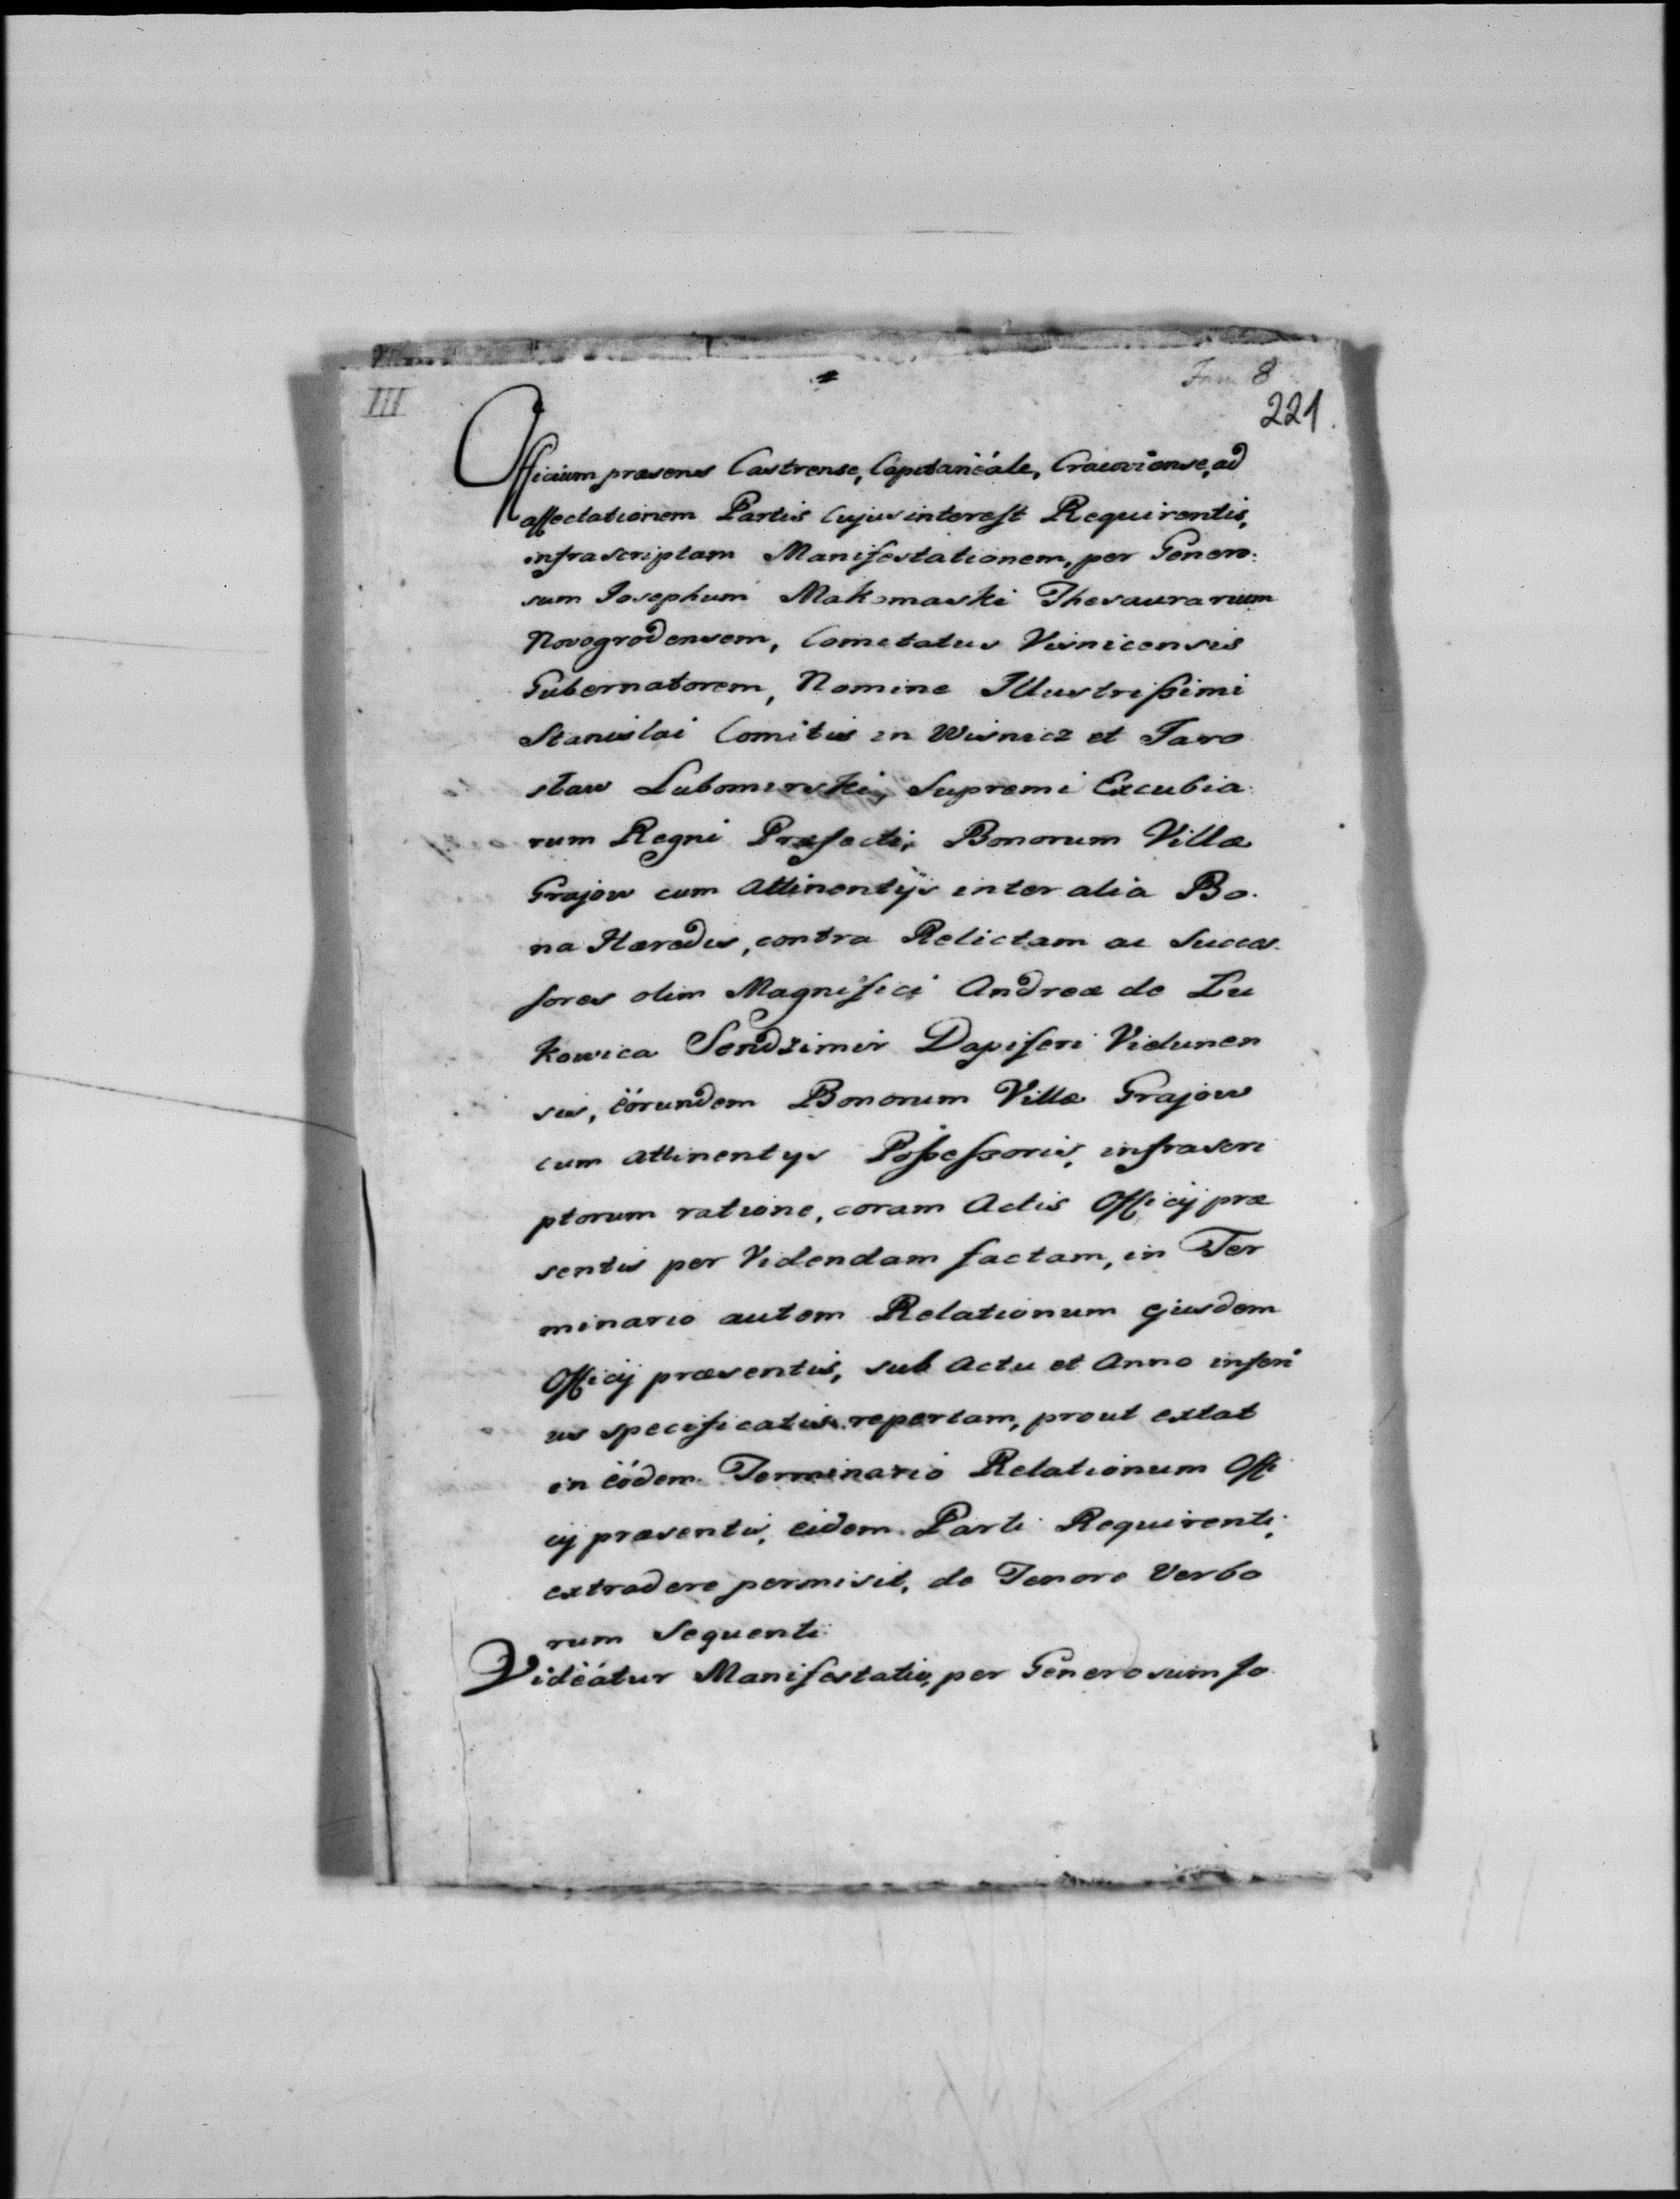 III
8
221.
Officium praesens Castrense, Capitanëále, Cracoviense, ad
affectationem Partis Cujus interest Requirentis,
infrascriptam Manifestationem, per Genero:
sum Josephum Makomaski Thesaurarium
Novogrodensem, Comitatus Visnicensis
Gubernatorem, Nomine Illustrissimi
Stanislai Comitis in Wisnicz et Jaro
slaw Lubomirski, Supremi Excubia
rum Regni Praefecti, Bonorum Villae
Grajow cum attinentijs inter alia Bo.
na Haeredis, contra Relictam ac Succes.
sores olim Magnifici Andreae de Lu
kowica Sendzimir Dapiferi Vielunen
sis, eörundem Bonorum Villae Grajow
cum attinentys Possessoris, infrascri
ptorum ratione, coram Actis Officij prae
sentis per Videndam factam, in Ter
minario autem Relationum ejusdem
Officij praesentis, sub Actu et Anno inferi
us specificatis repertam, prout extat
in eödem Terminario Relationum Offi
cij praesentis, eidem Parti Requirenti,
extradere permisit, de Tenore Verbo
rum Sequenti
Vidëátur Manifestatio, per Generosum Jo